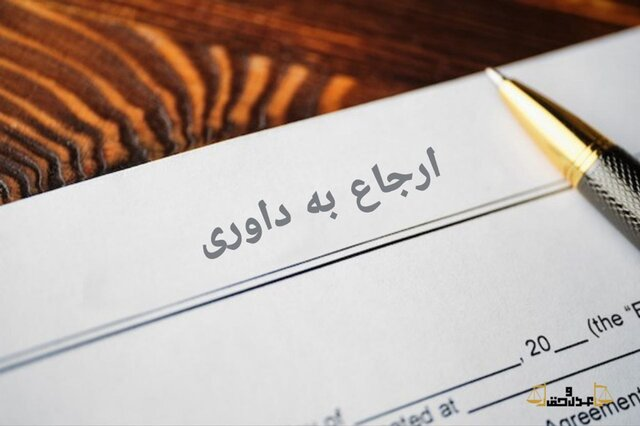 ارجاع به داوری
, 20___ (the "E
of
ated at
Agreement
عدل و حق